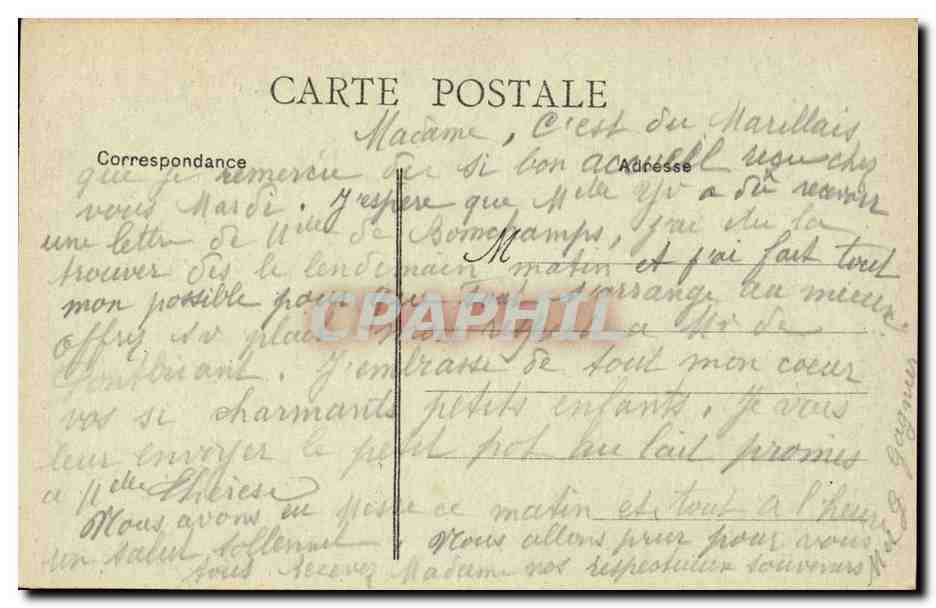 CARTE POSTALE
Madame, C'est du Marillais
Correspondance
Adresse
que je remercie du si bon accueil reçu chez
vous Mardi. J'espère que Melle Yv a dû recevoir
une lettre de Melle de Bonchamps, j'ai du la
trouver dès le lendemain matin et j'ai fait tout
M
mon possible pour que tout s'arrange au mieux.
CPAPHIL
offrez sv plait mon a Mr de
J'embrasse de tout mon coeur
vos si charmants petits enfants. Je vais
leur envoyer le petit pot au lait promis
a Melle Thérèse
Nous avons eu Messe ce matin et tout a l'heure
un salut sollennel. Nous allons prier pour vous
tous Recevez Madame nos respectueux souvenirs
Gagner